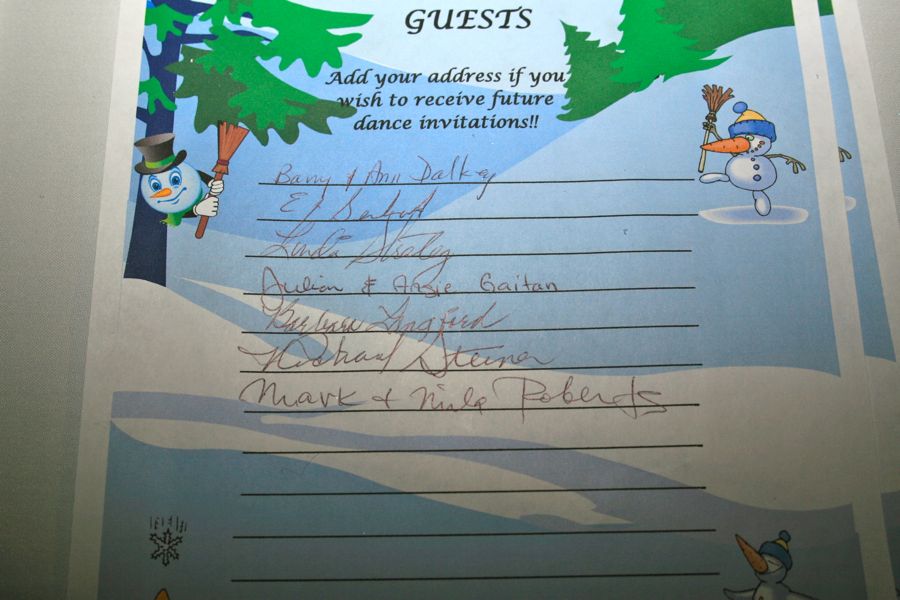 GUESTS
Add your address if you
wish to receive future
dance invitations!!
Barry & Ann Dalkey
Ed
Linda
Julian & Angie Gaitan
Barbara Langford
Michael Steiner
Mark + Nila Roberts